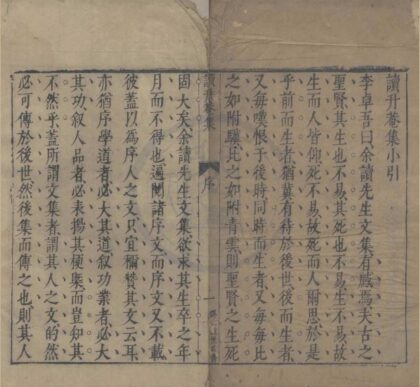 讀升菴集小引
李卓吾曰余讀先生文集有感焉夫古之
聖賢其生也不易其死也不易生不易故
生而人皆仰死不易故死而人爾思於是
乎前而生者猶冀有待於後世後而生者
又每嘆恨于後時同時而生者又每每比
之如附驥比之如附青雲則聖賢之生死
固大矣余讀先生文集欲求其生卒之年
月而不得也遍閱諸序文而序文又不載
彼蓋以為序人之文只宜稱贊其文云耳
亦猶序學道者必大其道叙功業者必大
其功叙人品者必表揚其梗槩而豈知其
不然乎蓋所謂文集者謂其人之文的然
必可傳於後世然後集而傳之也則其人
讀升菴集
序
一